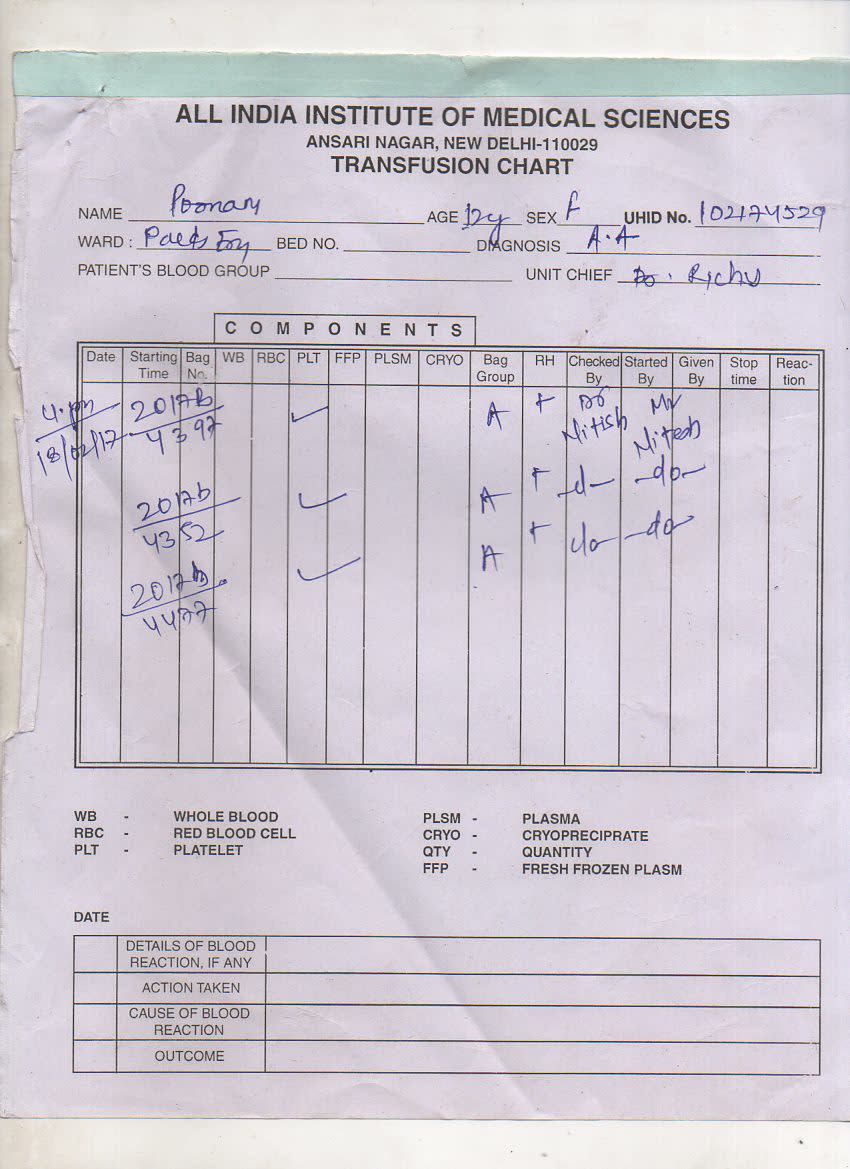 ALL INDIA INSTITUTE OF MEDICAL SCIENCES
ANSARI NAGAR, NEW DELHI-110029
TRANSFUSION CHART
NAME Poonam AGE 12y SEX F UHID No. 102174529
WARD : Paeds BED NO. DIAGNOSIS A.A
PATIENT'S BLOOD GROUP UNIT CHIEF Dr. Richu
COMPONENTS
Date Starting Time Bag No. WB RBC PLT FFP PLSM CRYO Bag Group RH Checked By Started By Given By Stop time Reac-tion
4.pm 2017b ✓ A + Dr Mr
18/02/17 4397 Nitish
2017b ✓ A + -d- -do-
4352
2017b ✓ A + do -do-
4477
WB - WHOLE BLOOD PLSM - PLASMA
RBC - RED BLOOD CELL CRYO - CRYOPRECIPRATE
PLT - PLATELET QTY - QUANTITY
FFP - FRESH FROZEN PLASM
DATE
DETAILS OF BLOOD
REACTION, IF ANY
ACTION TAKEN
CAUSE OF BLOOD
REACTION
OUTCOME